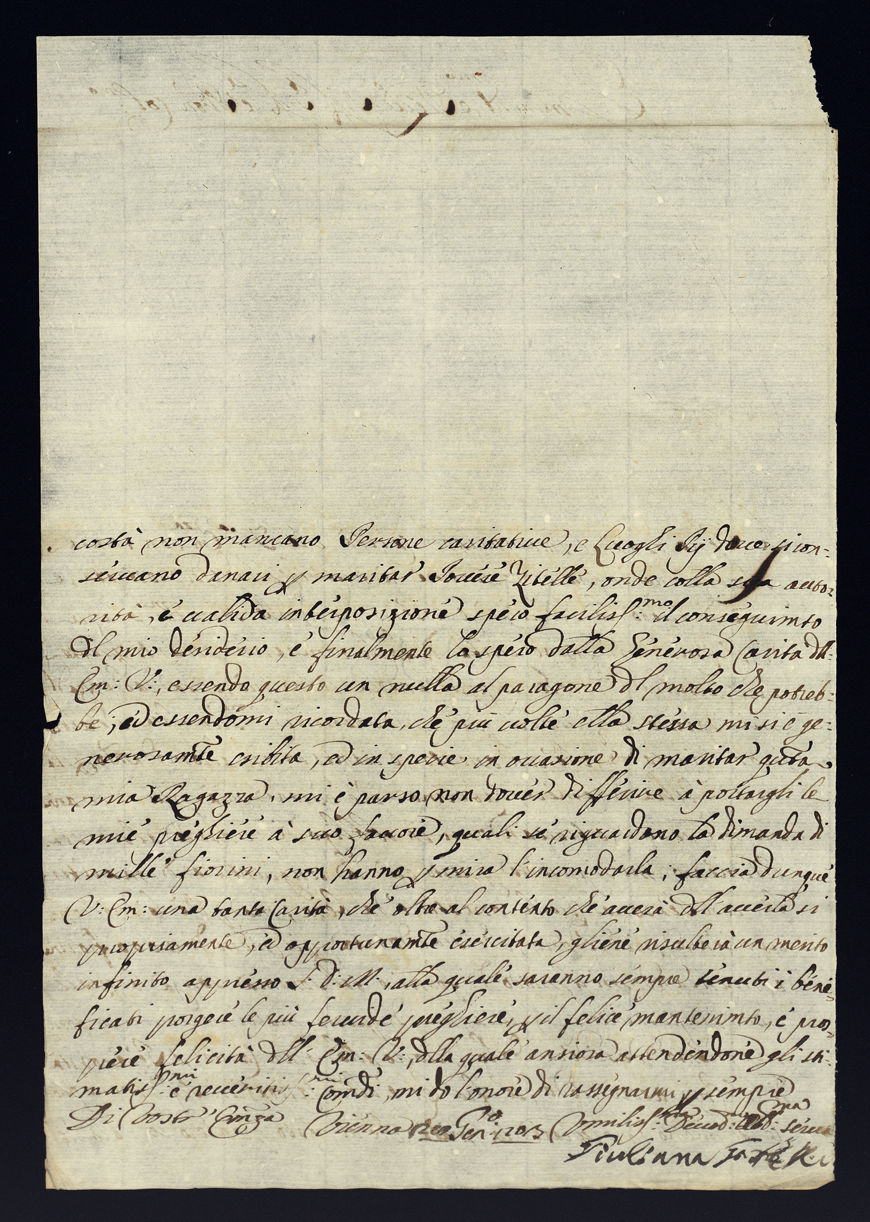 costà non mancano Persone caritative, e Luoghi Pij dove si con=
seccano danari p maritar Povere Zitelle, onde colla sua auto=
rità, e valida interposizione spero faciliss:mo il conseguimto
dl mio desiderio, e finalmente lo spero dalla Generosa Carità dll:
Em: V:, essendo questo un nulla al paragone dl molto che potreb=
be; ed essendomi ricordata, che più volte ella stessa mi si e ge=
nerosamte esibita, ed in specie in occasione di maritar questa
mia Ragazza, mi è parso non dover differire à portargli le
mie preghiere à suo favore, quali se riguardano la dimanda di
mille fiorini, non hanno p mira l'incomodarla; faccia dunque
V: Em: una tanta Carità, che oltre al contento che averà dll'averla si
propriamente, ed opportunamte esercitata, gliene risulterà un merito
infinito appresso S: D: M:, alla quale saranno sempre tenuti i bene=
ficati porgere le più fervide preghiere, p il felice mantenimto, e pro=
spere felicità dll: Em: V:, dlla quale ansiosa attendendone gli sti=
matiss:mi e riveritiss:mi Comdi mi do l'onore di rassegnarmi p sempre
Di Vostr' Eminza Vienna Umiliss:ma Devod: Obb:ma Serva
Giuliana